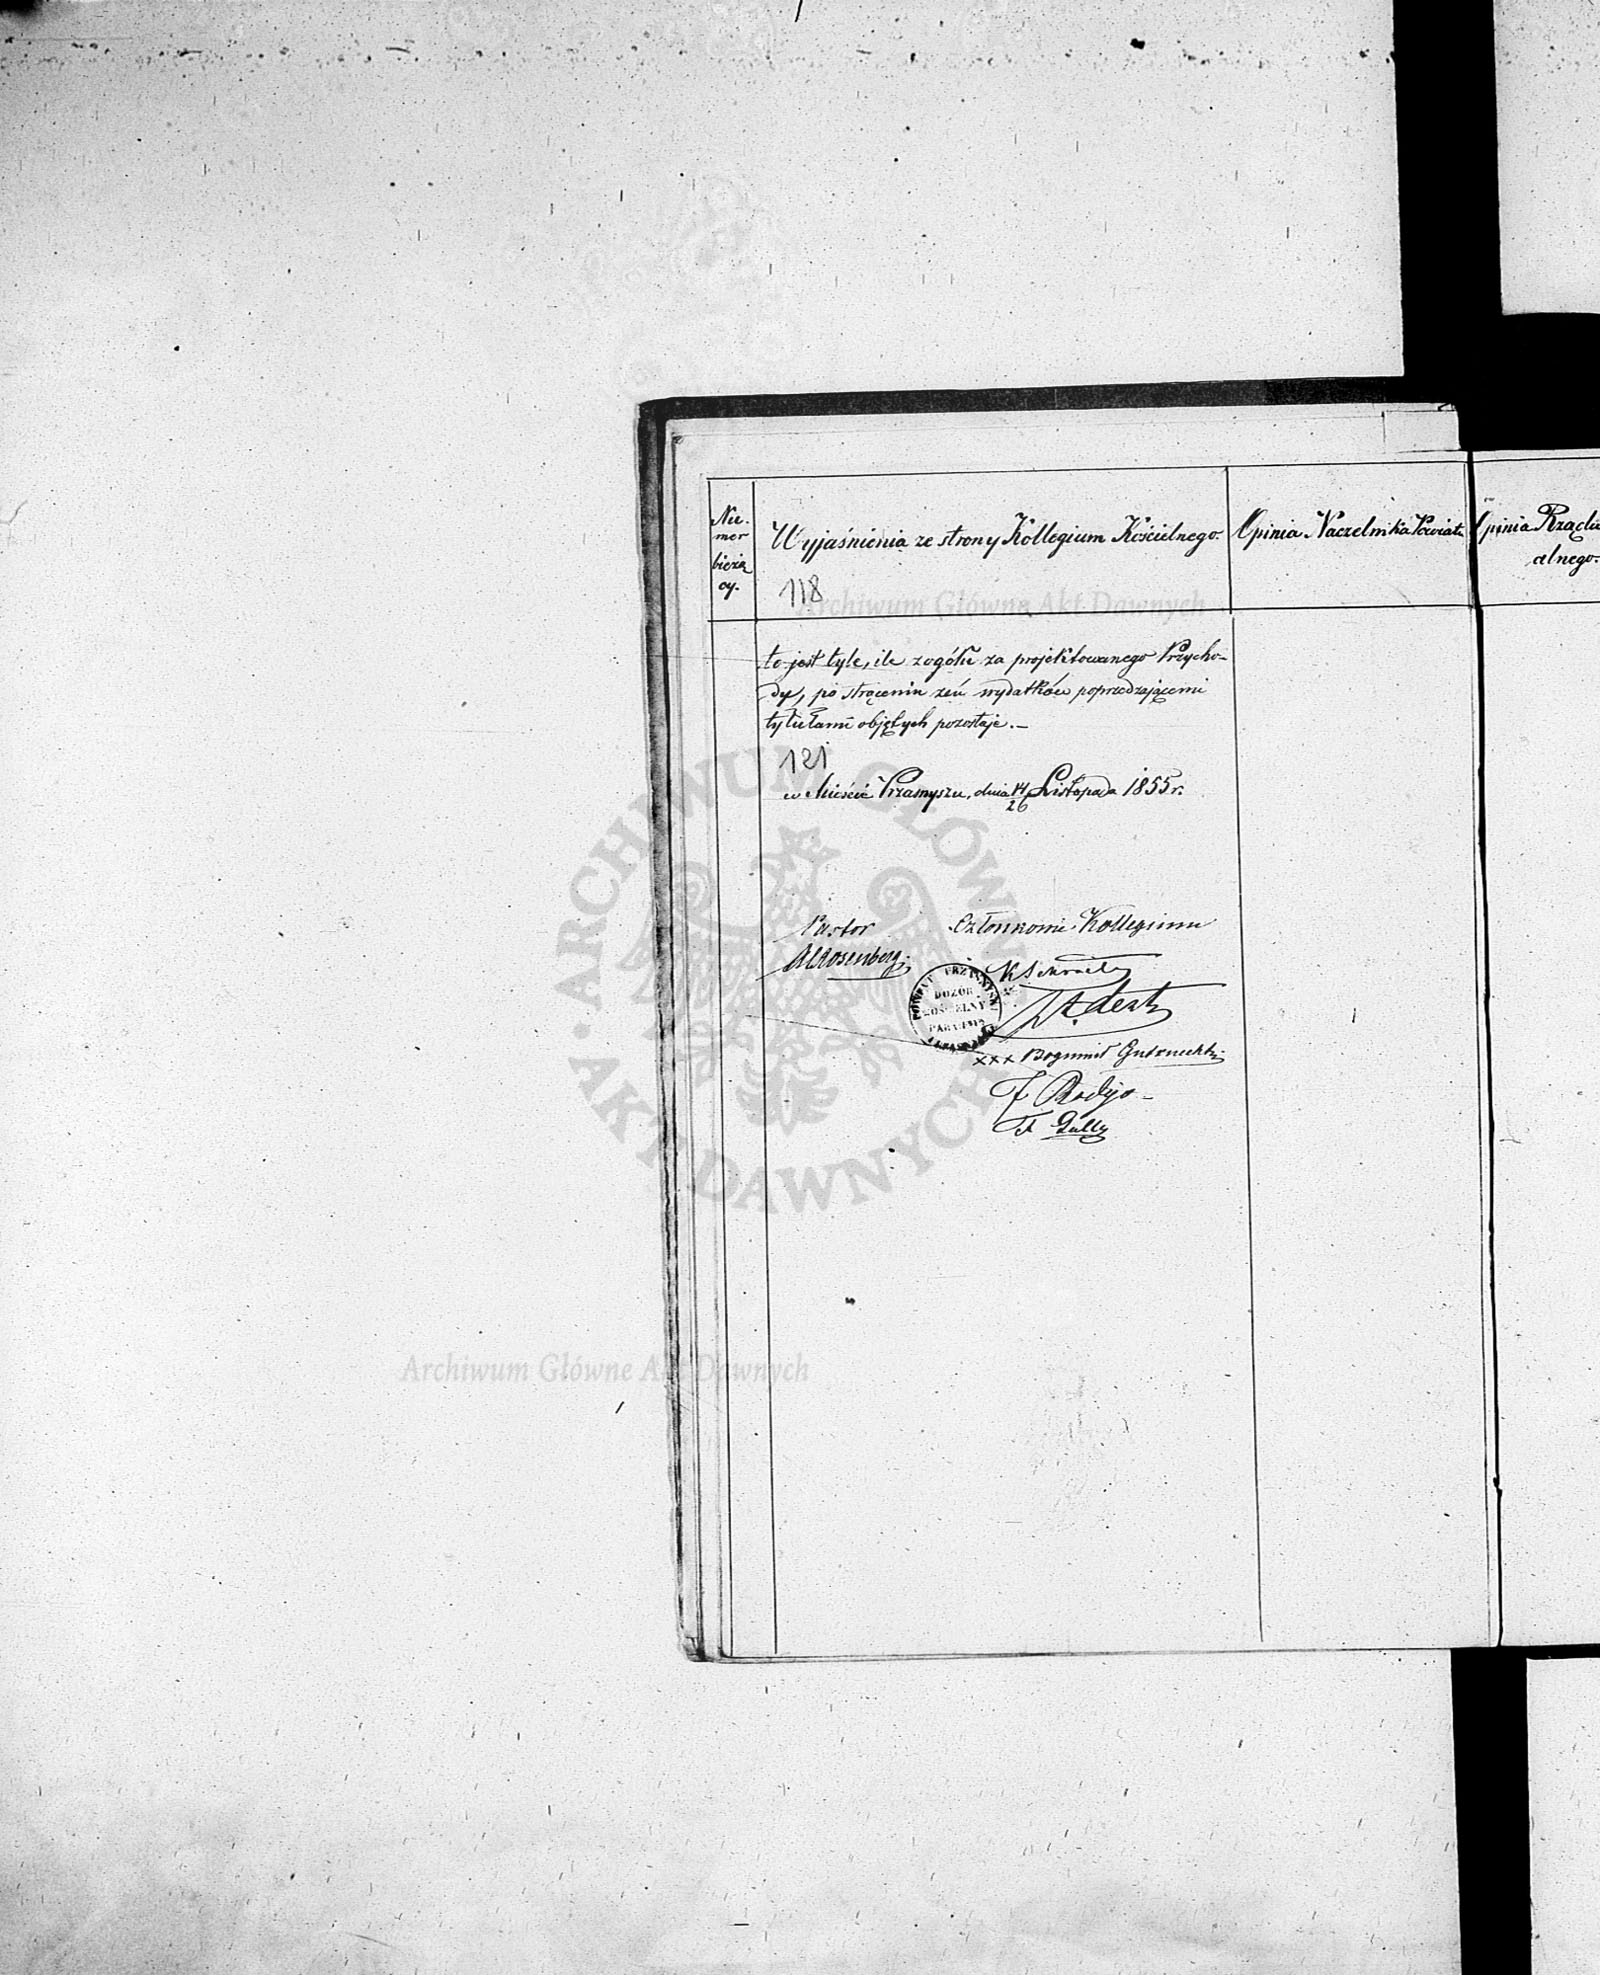 Nu-
mer
bieżą
cy.
Wyjaśnienia ze strony Kollegium Kościelnego.
Opinia Naczelnika Powiatu
Opinia Rządu
alnego.
118
to jest tyle, ile z ogółu za projektowanego Przycho-
dy, po strąceniu zeń wydatków poprzedzającemi
tytułami objętych pozostaje.—
121
w Mieście Przasnyszu, dnia 14/26 Listopada 1855 r.
Pastor
Członkowie Kollegium
Rosenberg
DOZÓR
KOŚCIELNY
xxx Bogumił Gutknecht
F Radyo
F Gully
ARCHIWUM GŁÓWNE AKT DAWNYCH
Archiwum Główne Akt Dawnych
Archiwum Główne Akt Dawnych